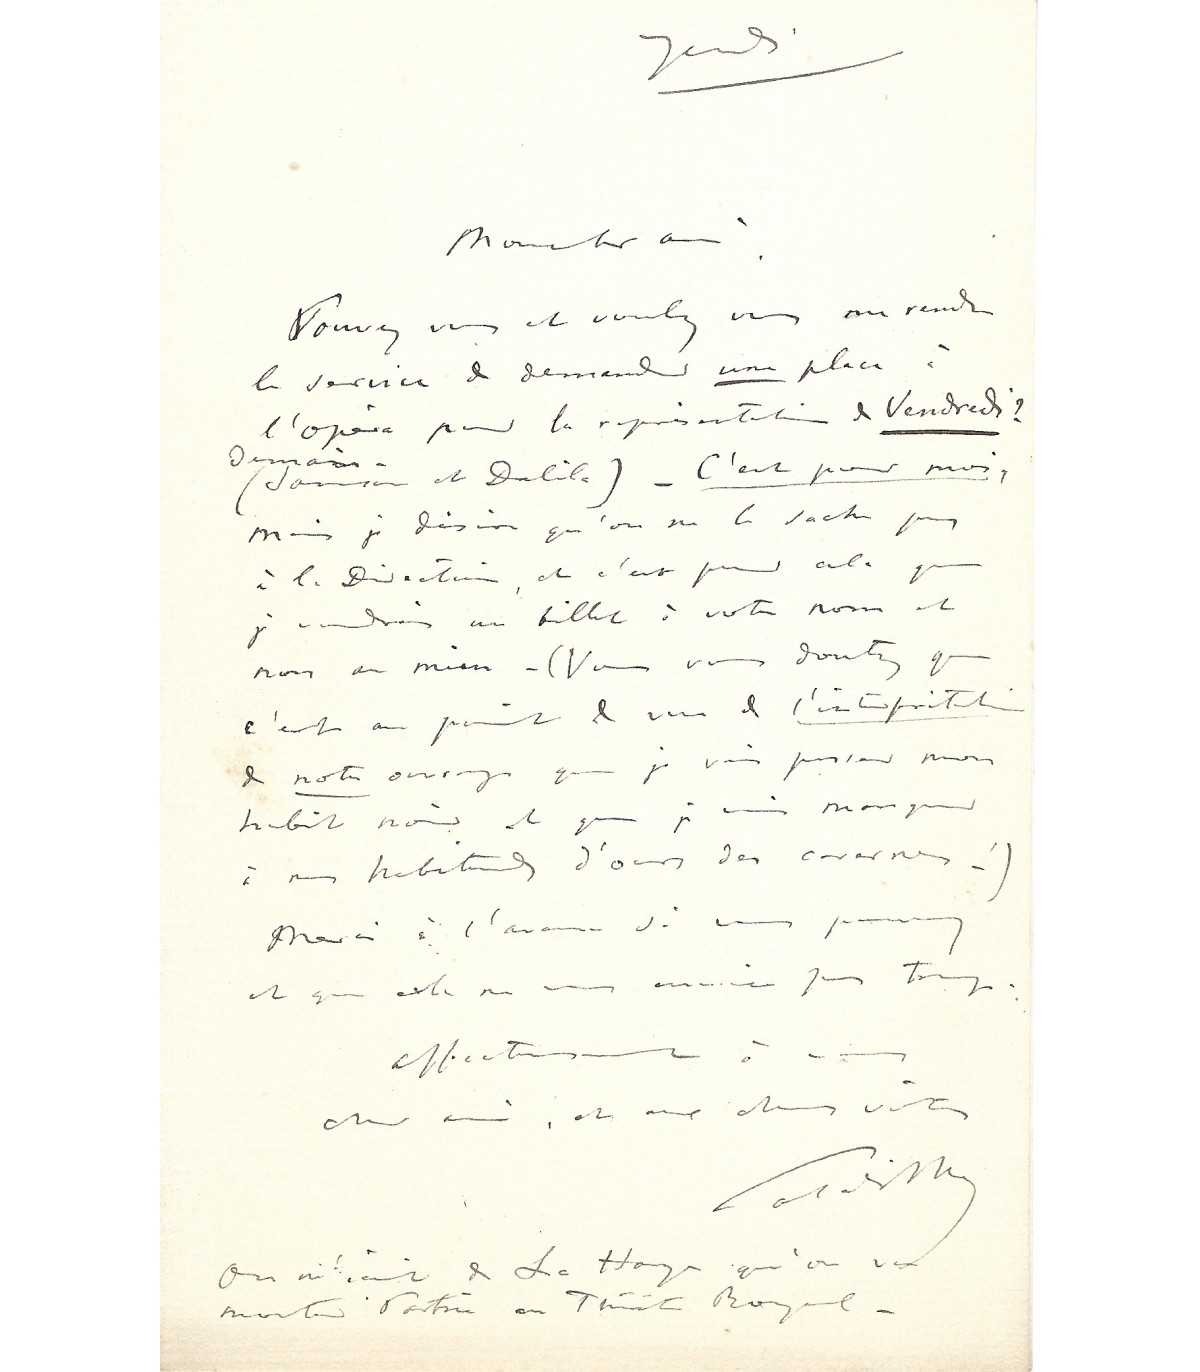 Jeudi
Mon cher ami,
Pouvez vous et voulez vous me rendre
le service de demander une place à
l'opéra pour la représentation de Vendredi?
Demain -
(Samson et Dalila) - C'est pour moi,
mais je désire qu'on ne le sache pas
à la Direction, et c'est pour cela que
je voudrais un billet à votre nom et
non au mien - (Vous vous doutez que
c'est au point de vue de l'interprétation
de notre ouvrage que je vais passer mon
habit noir et que je vais manquer
à mes habitudes d'ours des cavernes -!)
Merci à l'avance si vous pouvez
et que cela ne vous ennuie pas trop.
affectueusement à vous
cher ami, et aux chers vôtres
Paladilhe
On m'écrit de La Haye qu'on va
monter Patrie au Théâtre Royal -